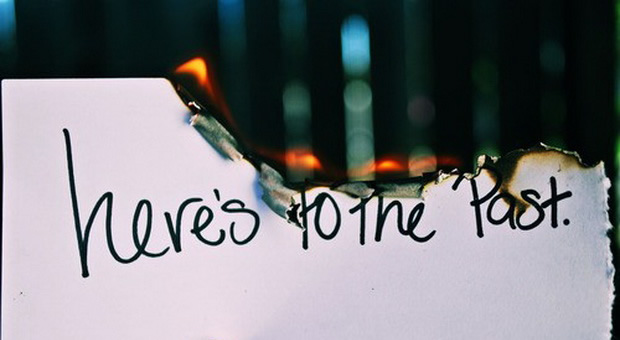 here's to the Past.